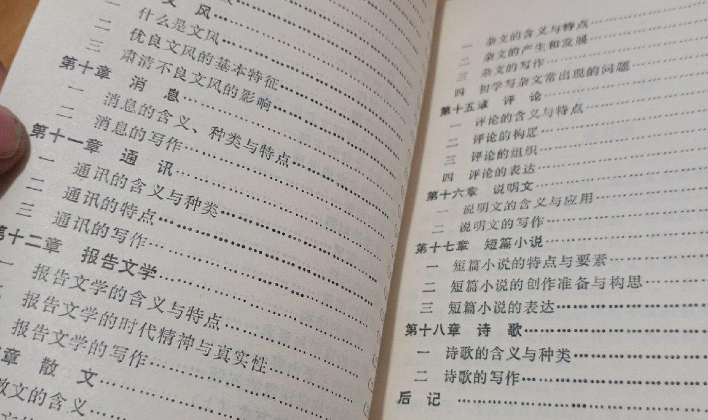 文 风
一 什么是文风
二 优良文风的基本特征
三 肃清不良文风的影响
第十章 消 息
一 消息的含义、种类与特点
二 消息的写作
第十一章 通 讯
一 通讯的含义与种类
二 通讯的特点
三 通讯的写作
第十二章 报告文学
一 报告文学的含义与特点
报告文学的时代精神与真实性
报告文学的写作
章 散 文
散文的含义
一 杂文的含义与特点
二 杂文的产生和发展
三 杂文的写作
四 初学写杂文常出现的问题
第十五章 评 论
一 评论的含义与特点
二 评论的构思
三 评论的组织
四 评论的表达
第十六章 说明文
一 说明文的含义与应用
二 说明文的写作
第十七章 短篇小说
一 短篇小说的特点与要素
二 短篇小说的创作准备与构思
三 短篇小说的表达
第十八章 诗 歌
一 诗歌的含义与种类
二 诗歌的写作
后 记